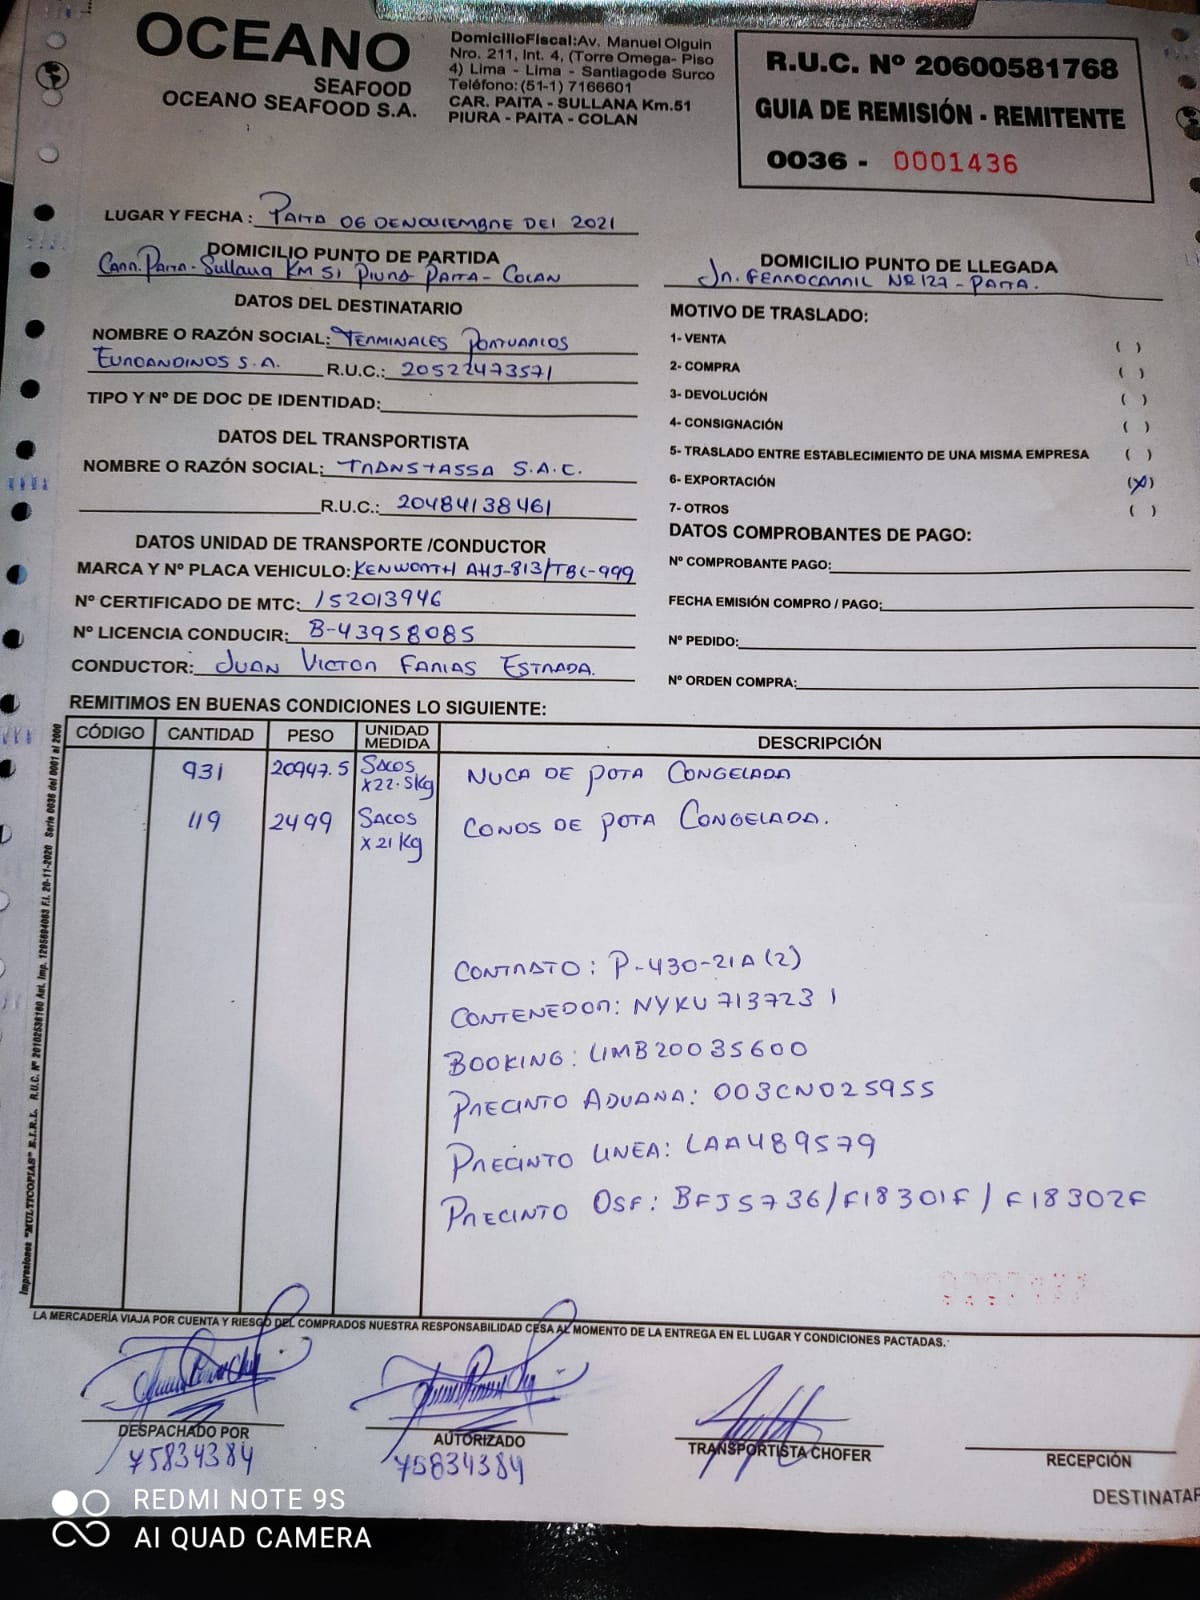 OCEANO
SEAFOOD
OCEANO SEAFOOD S.A.
DomicilioFiscal:Av. Manuel Olguin
Nro. 211, Int. 4, (Torre Omega- Piso
4) Lima - Lima - Santiagode Surco
Teléfono:(51-1) 7166601
CAR. PAITA - SULLANA Km.51
PIURA - PAITA - COLAN
R.U.C. Nº 20600581768
GUIA DE REMISIÓN - REMITENTE
0036 - 0001436
LUGAR Y FECHA : PAITA 06 DE NOVIEMBRE DEL 2021
DOMICILIO PUNTO DE PARTIDA
Carr. Paita - Sullana KM 51 Piura Paita - Colan
DOMICILIO PUNTO DE LLEGADA
Jr. FERROCARRIL Nº 127 - PAITA.
DATOS DEL DESTINATARIO
NOMBRE O RAZÓN SOCIAL: TERMINALES PORTUARIOS
EUROANDINOS S.A. R.U.C.: 20522473571
TIPO Y Nº DE DOC DE IDENTIDAD:
DATOS DEL TRANSPORTISTA
NOMBRE O RAZÓN SOCIAL: TRANSTASSA S.A.C.
R.U.C.: 20484138461
DATOS UNIDAD DE TRANSPORTE /CONDUCTOR
MARCA Y Nº PLACA VEHICULO: KENWORTH AHJ-813/TBC-999
Nº CERTIFICADO DE MTC: 152013946
Nº LICENCIA CONDUCIR: B-43958085
CONDUCTOR: JUAN VICTOR FARIAS ESTRADA.
MOTIVO DE TRASLADO:
1- VENTA ( )
2- COMPRA ( )
3- DEVOLUCIÓN ( )
4- CONSIGNACIÓN ( )
5- TRASLADO ENTRE ESTABLECIMIENTO DE UNA MISMA EMPRESA ( )
6- EXPORTACIÓN (X)
7- OTROS ( )
DATOS COMPROBANTES DE PAGO:
Nº COMPROBANTE PAGO:
FECHA EMISIÓN COMPRO / PAGO:
Nº PEDIDO:
Nº ORDEN COMPRA:
REMITIMOS EN BUENAS CONDICIONES LO SIGUIENTE:
CÓDIGO CANTIDAD PESO UNIDAD MEDIDA DESCRIPCIÓN
931 20947.5 SACOS x22.5Kg NUCA DE POTA CONGELADA
119 2499 SACOS x 21 Kg CONOS DE POTA CONGELADA.
CONTRATO: P-430-21A (2)
CONTENEDOR: NYKU 713723 1
BOOKING: LIMB20035600
PRECINTO ADUANA: 003CN025955
PRECINTO LINEA: LAA489579
PRECINTO OSF: BFJ5736/F18301F / F18302F
Impresiones "MULTICOPIAS" E.I.R.L. R.U.C. Nº 20102536180 Aut. Imp. 1295694083 F.I. 20-11-2020 Serie 0036 del 0001 al 2000
LA MERCADERÍA VIAJA POR CUENTA Y RIESGO DEL COMPRADOS NUESTRA RESPONSABILIDAD CESA AL MOMENTO DE LA ENTREGA EN EL LUGAR Y CONDICIONES PACTADAS.
DESPACHADO POR
75834384
AUTORIZADO
75834384
TRANSPORTISTA CHOFER
RECEPCIÓN
DESTINATAR
REDMI NOTE 9S
AI QUAD CAMERA